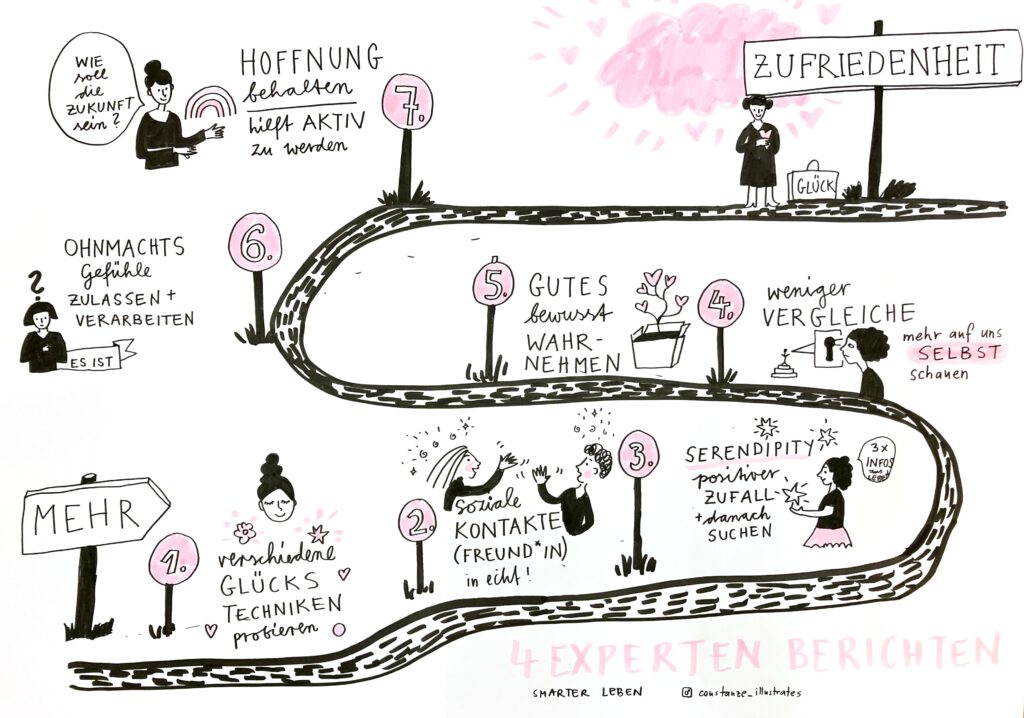 MEHR
1.
verschiedene
GLÜCKS
TECHNIKEN
probieren
2.
soziale
KONTAKTE
(FREUND*IN)
in echt!
3.
SERENDIPITY
positiver
ZUFALL-
+ danach
SUCHEN
3x
INFOS
4.
weniger
VERGLEICHE
mehr auf uns
SELBST
schauen
5.
GUTES
bewusst
WAHR-
NEHMEN
6.
OHNMACHTS
Gefühle
ZULASSEN +
VERARBEITEN
?
ES IST
7.
HOFFNUNG
behalten
hilft AKTIV
zu werden
WIE
soll
die
ZUKUNFT
sein?
ZUFRIEDENHEIT
GLÜCK
4 EXPERTEN BERICHTEN
SMARTER LEBEN
constanze_illustrates